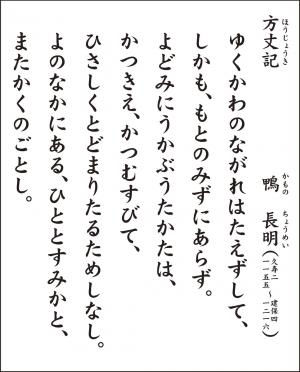 方丈記 鴨 長明(久寿二 一一五五〜建保四 一二一六)
ほうじょうき かもの ちょうめい
ゆくかわのながれはたえずして、
しかも、もとのみずにあらず。
よどみにうかぶうたかたは、
かつきえ、かつむすびて、
ひさしくとどまりたるためしなし。
よのなかにある、ひととすみかと、
またかくのごとし。